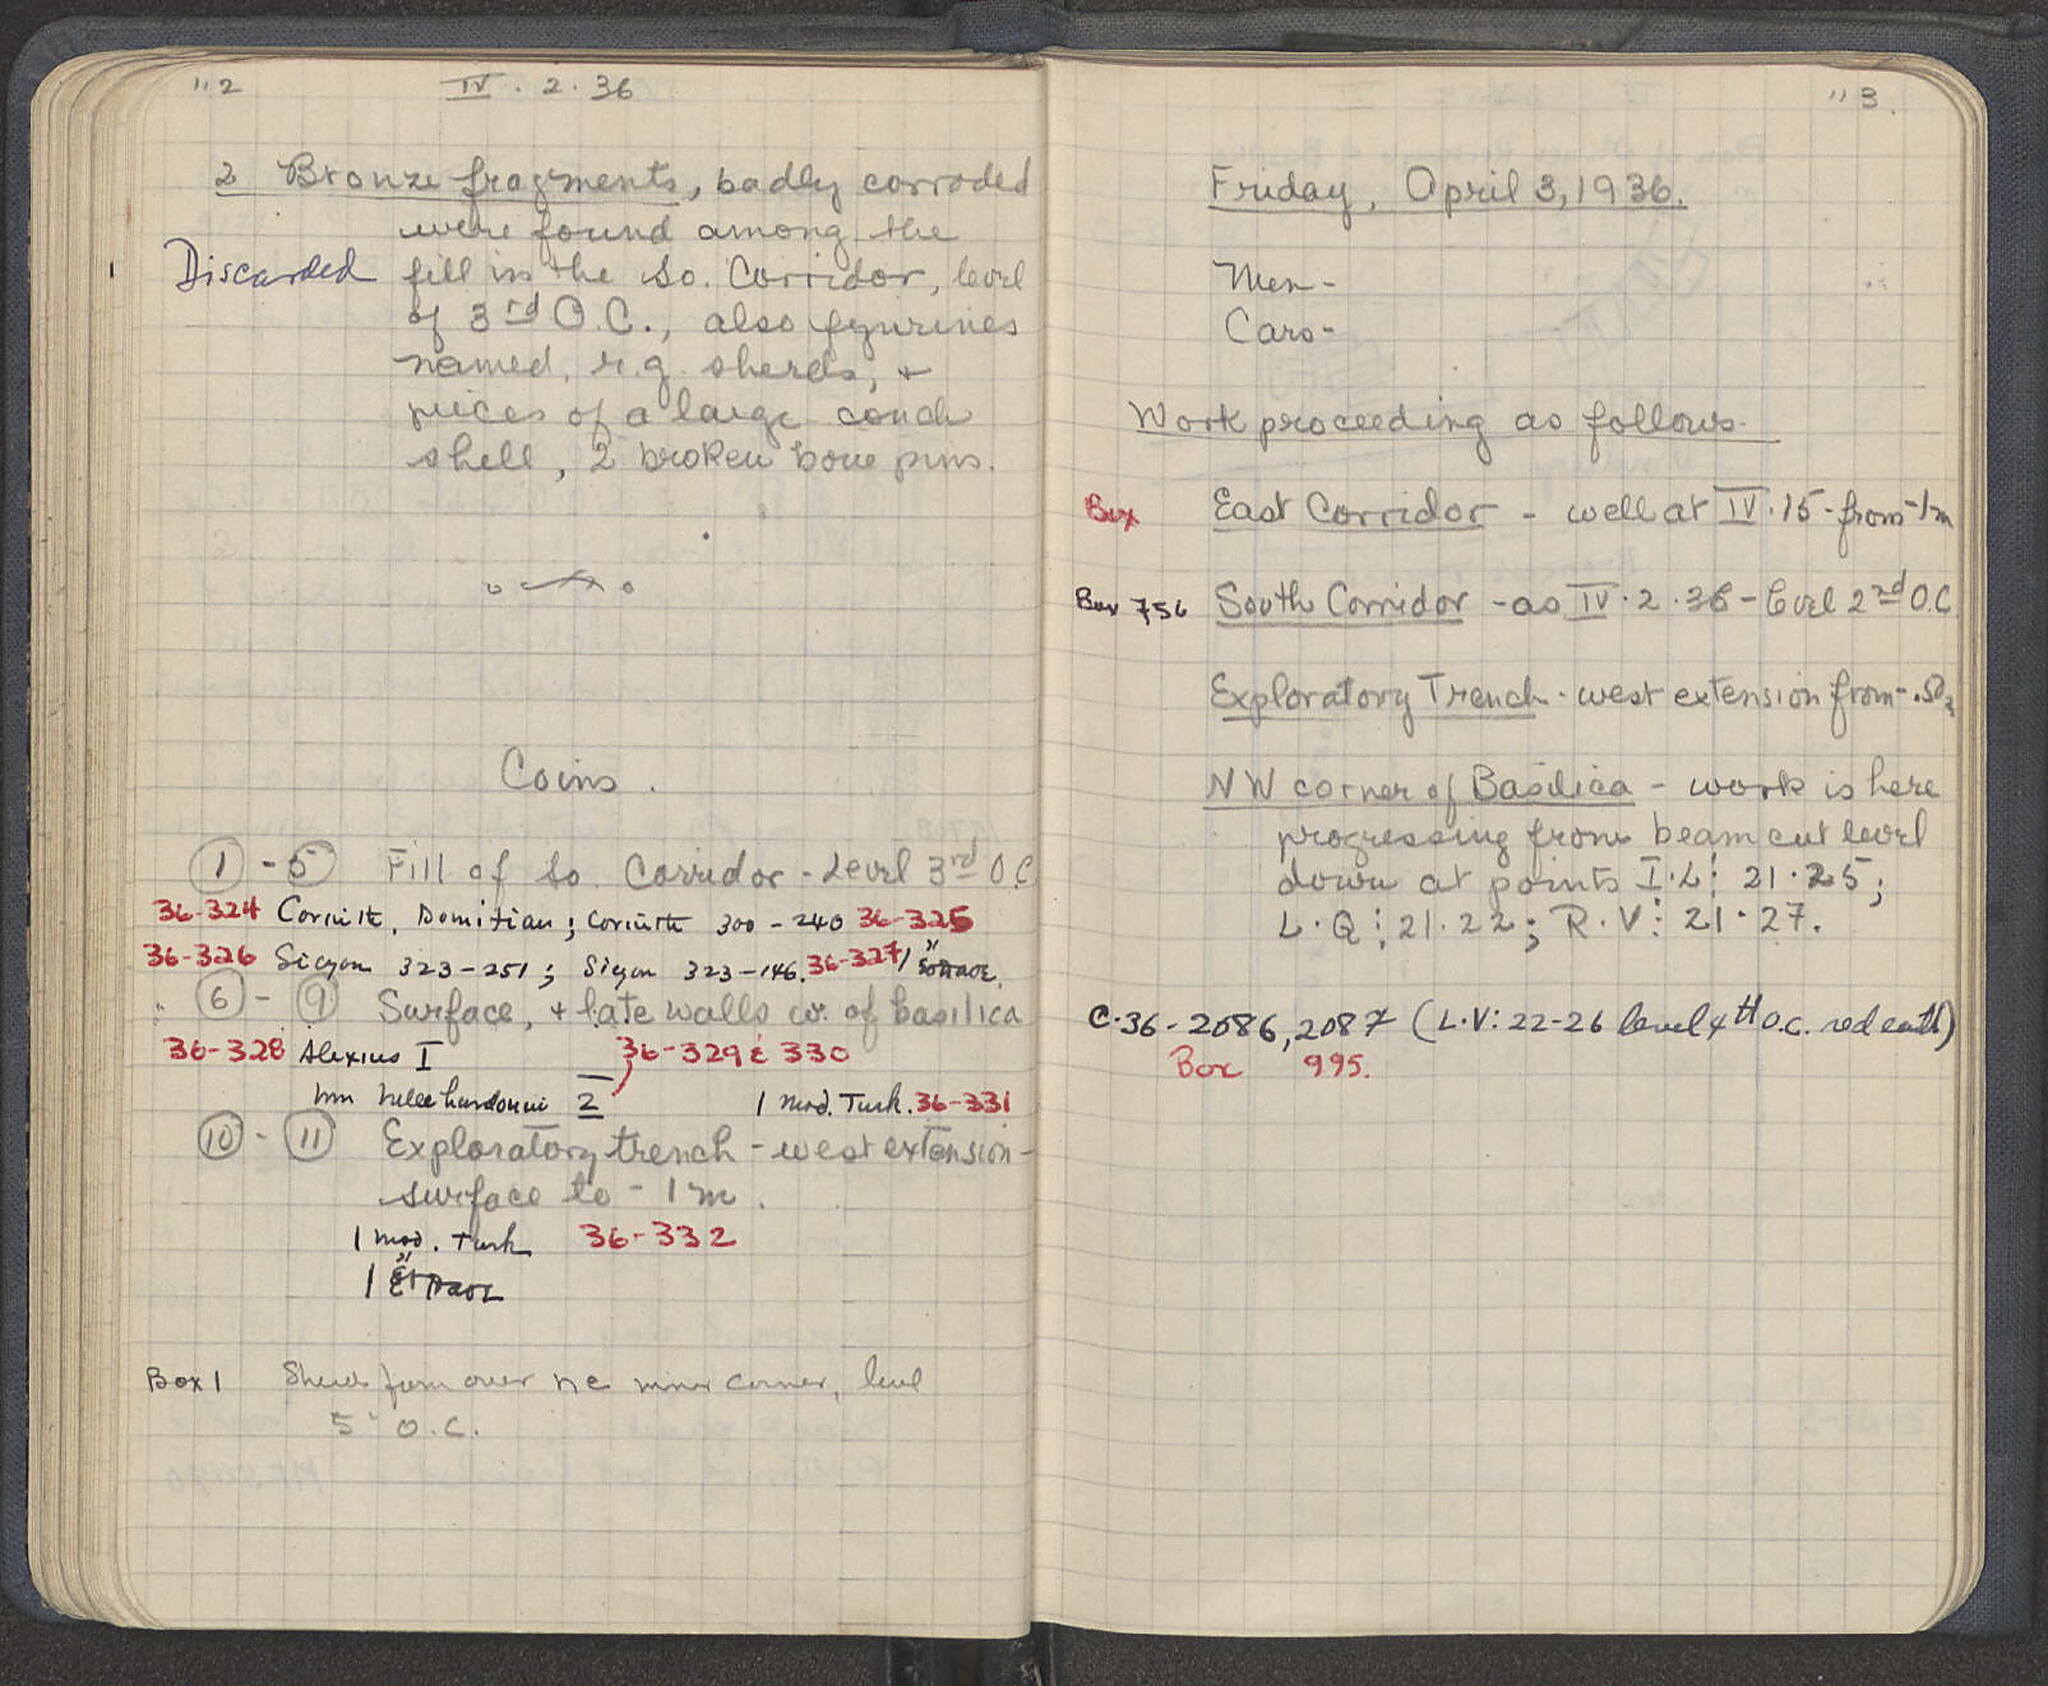 "2 IV. 2. 36
2 Bronze fragments, badly corroded
were found among the
Discarded fill in the So. Corridor, level
of 3rd O.C., also figurines
named, r.g. sherds, +
pieces of a large conch
shell, 2 broken bone pins.
Coins.
1 - 5 Fill of So. Corridor - Level 3rd O.C.
36-324 Corinth, Domitian; Corinth 300-240 36-325
36-326 Sicyon 323-251; Sicyon 323-146. 36-327 1
6 - 9 Surface, + late walls w. of basilica
36-328 Alexius I 36-329 & 330
2 1 mod. Turk. 36-331
10 - 11 Exploratory trench - west extension -
surface to - 1 m.
1 mod. Turk 36-332
1
Box 1 Sherds from over ne inner corner, level
5 O.C.
"3.
Friday, April 3, 1936.
Men -
Cars -
Work proceeding as follows.
Box East Corridor - well at IV.15 - from -1m
Box 756 South Corridor - as IV.2.36 - level 2nd O.C.
Exploratory Trench - west extension from -.50
NW corner of Basilica - work is here
progressing from beam cut level
down at points I.L: 21.25;
L.Q: 21.22; R.V: 21.27.
C.36-2086, 2087 (L.V: 22-26 level 4th O.C. red earth)
Box 995.